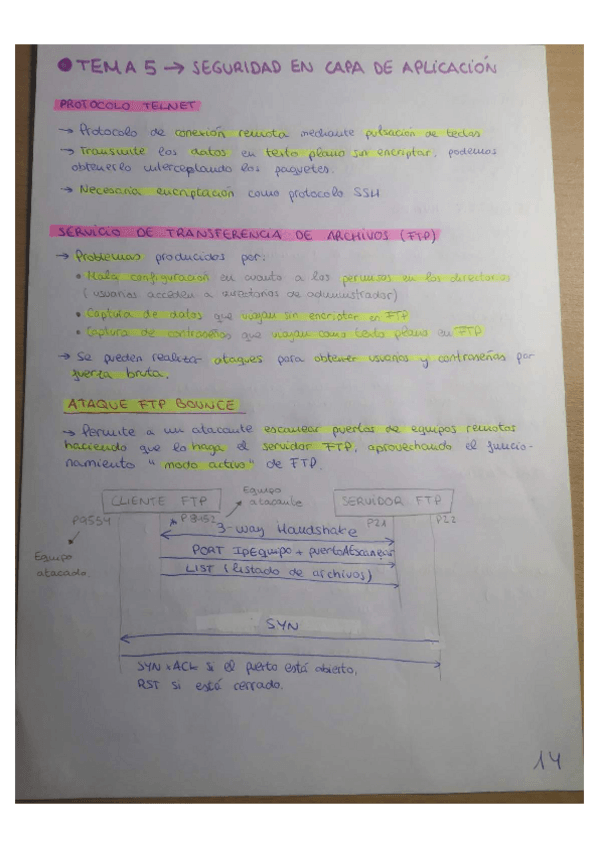 ● TEMA 5 → SEGURIDAD EN CAPA DE APLICACIÓN
PROTOCOLO TELNET
→ Protocolo de conexión remota mediante pulsación de teclas
→ Transmite los datos en texto plano sin encriptar, podemos
obtenerlo interceptando los paquetes.
→ Necesaria encriptación como protocolo SSH
SERVICIO DE TRANSFERENCIA DE ARCHIVOS (FTP)
→ Problemas producidos por:
• Mala configuración en cuanto a los permisos en los directorios
(usuarios acceden a directorios de administrador)
• Captura de datos que viajan sin encriptar en FTP
• Captura de contraseñas que viajan como texto plano en FTP
→ Se pueden realizar ataques para obtener usuarios y contraseñas por
fuerza bruta.
ATAQUE FTP BOUNCE
→ Permite a un atacante escanear puertos de equipos remotos
haciendo que lo haga el servidor FTP, aprovechando el funcio-
namiento "modo activo" de FTP.
Equipo
atacante
CLIENTE FTP SERVIDOR FTP
P9554 P21 P22
3-way Handshake
Equipo
atacado
PORT IpEquipo + puertoAEscanear
LIST (listado de archivos)
SYN
SYN+ACK si el puerto está abierto,
RST si está cerrado.
14